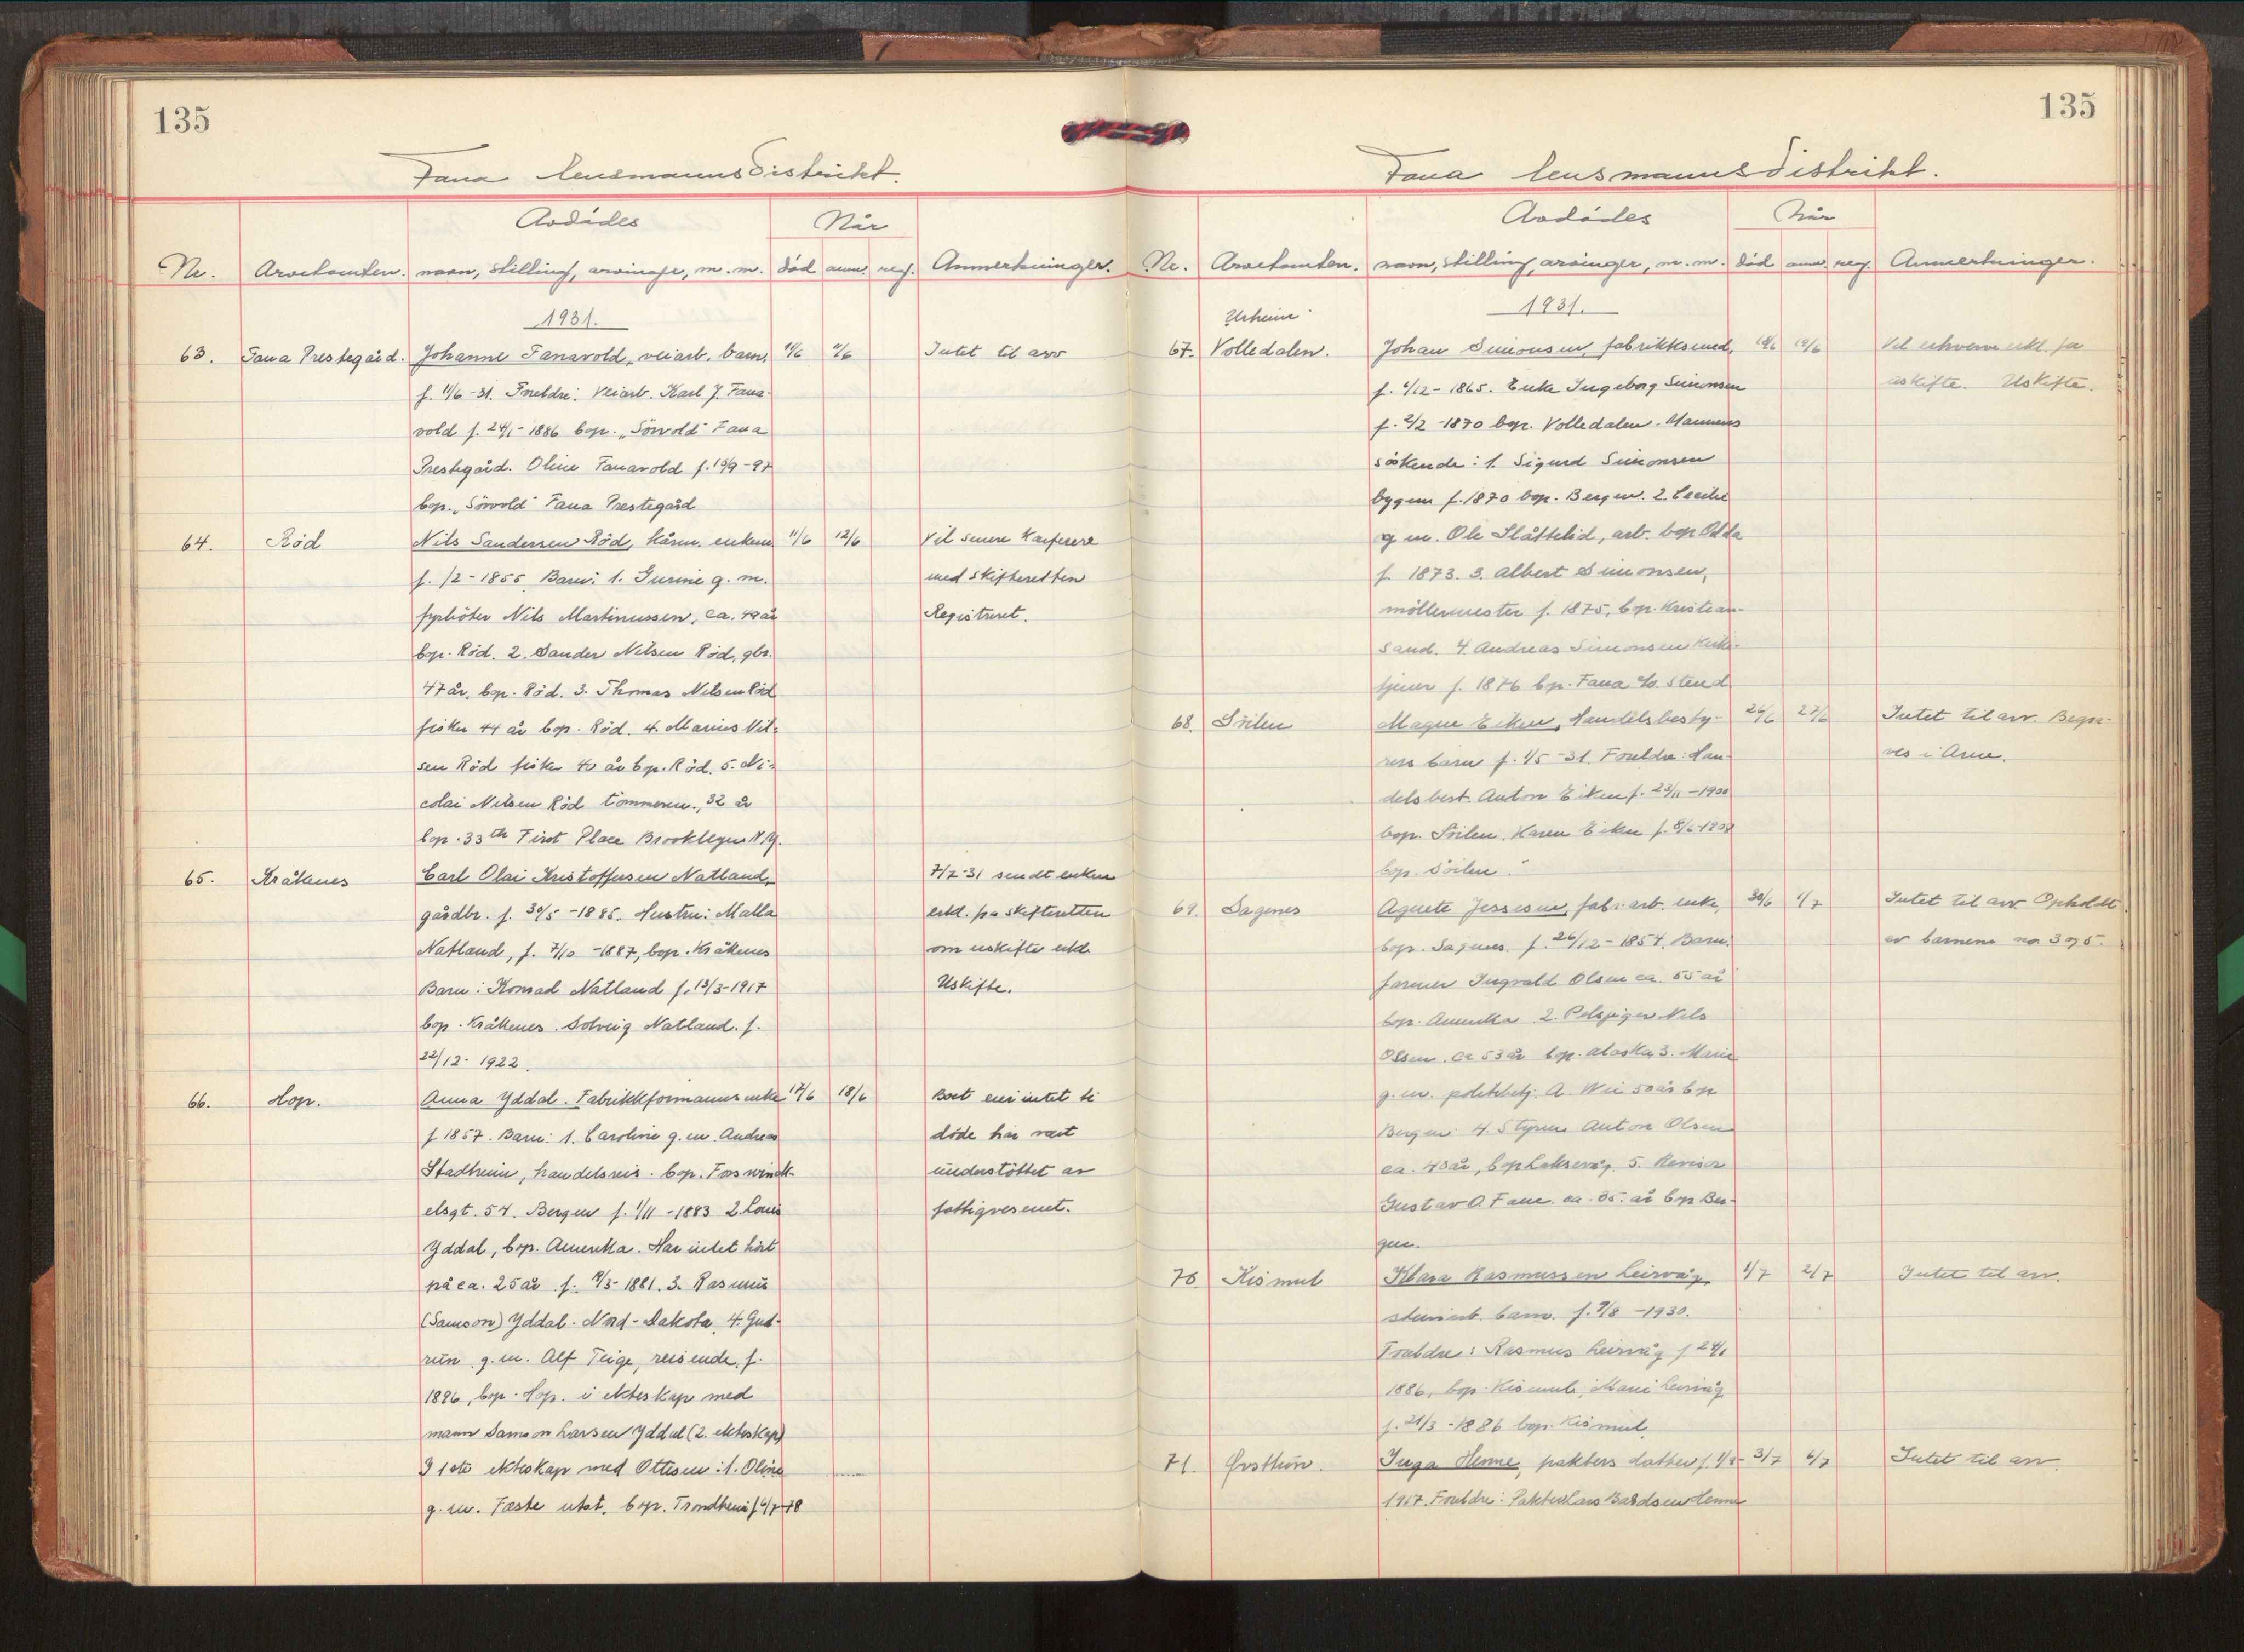 135
Fana lensmannsdistrikt.
Avdødes
Når
Nr. Arvetomten. navn, stilling, arvinger, m.m. død anm. reg. Anmerkninger.
1931.
63. Fana Prestegård. Johanne Fanavold, veiarb. barn, 11/6 11/6 Intet til arv
f. 11/6-31. Foreldre: Veiarb. Karl J. Fana-
vold f. 24/1-1886 bop. "Sörvold" Fana
Prestegård. Oline Fanavold f. 19/9-97
bop. "Sörvold" Fana Prestegård
64. Röd Nils Sandersen Röd, kårm. enkem. 11/6 12/6 Vil senere konferere
f. /2-1855. Barn: 1. Gurine g. m. med skifteretten
fyrböter Nils Martinussen, ca. 49 år Registreret.
bop. Röd. 2. Sander Nilsen Röd, gbr.
47 år, bop. Röd. 3. Thomas Nilsen Röd
fisker 44 år bop. Röd. 4. Marius Nil-
sen Röd fisker 40 år bop. Röd. 5. Ni-
colai Nilsen Röd tömmerm., 32 år
bop. 33th First Place Brooklyn N.Y.
65. Kråkenes Carl Olai Kristoffersen Natland, 7/7-31 sendt enken
gårdbr. f. 30/5-1885. Hustru: Malla erkl. fra skifteretten
Natland, f. 7/10-1887, bop. Kråkenes om uskifte erkl.
Barn: Konrad Natland f. 13/3-1917 Uskifte.
bop. Kråkenes. Solveig Natland. f.
22/12-1922.
66. Hop. Anna Yddal. Fabrikkformanns enke 17/6 18/6 Boet eier intet
f 1857. Barn: 1. Caroline g. m. Andreas döde har vært
Stadheim, handelsreis. bop. Fosswinck- understöttet av
elsgt. 54. Bergen f. 1/11-1883 2. Louis fattigvesenet.
Yddal, bop. Amerika. Har intet hört
på ca. 25 år f. 9/3-1881. 3. Rasmus
(Samson) Yddal. Nord-Dakota, 4. Gud-
run g. m. Alf Teige, reisende, f.
1896, bop. Hop. i ekteskap med
mann Samson Larsen Yddal (2. ekteskap)
I 1ste ekteskap med Ottesen: 1. Oline
g. m. Fæste utst. bop. Trondheim f. 4/7-78
135
Fana lensmannsdistrikt.
Avdødes
Når
Nr. Arvetomten. navn, stilling, arvinger, m.m. død anm. reg. Anmerkninger.
1931.
Urheim
67. Volledalen. Johan Simonsen, fabrikksmed, 18/6 19/6 Vil erhverve erkl. for
f. 4/12-1865. Enke Ingeborg Simonsen uskifte. Uskifte.
f. 2/2-1870 bop. Volledalen. Mannens
söskende: 1. Sigurd Simonsen
bygm f. 1870 bop. Bergen. 2. Cecilie
g m. Ole Slåttelid, arb. bop Odda
f 1873. 3. Albert Simonsen,
möllermester f. 1875, bop. Kristian-
sand. 4. Andreas Simonsen kirke-
tjener f. 1876 bp. Fana %o Stend
68. Söilen Magne Eiken, Handelsbesty- 26/6 27/6 Intet til arv. Begra-
rers barn f. 1/5-31. Foreldre: Han- ves i Arne.
delsbest. Anton Eiken f. 23/11-1900
bop. Söilen. Karen Eiken f. 8/6-1908
bop. Söilen.
69. Sagenes Agnete Jessesen, fabr.arb. enke, 30/6 1/7 Intet til arv. Opholdt
bop. Sagenes. f. 26/12-1854. Barn: av barnene no. 3 og 5.
farmer Ingvald Olsen ca. 55 år
bop. Amerika 2. Pelsjeger Nils
Olsen. ca 53 år bop. Alaska 3. Marie
g. m. politibetj. A. Wei 50 år bp
Bergen 4. Styrm Anton Olsen
ca. 43 år, bop Laksevåg. 5. Revisor
Gustav O Fane. ca. 35. år bop Ber-
gen.
70. Kismul Klara Rasmussen Leirvåg, 1/7 2/7 Intet til arv.
steinarb. barn. f. 9/8-1930.
Foreldre: Rasmus Leirvåg f 24/1
1886, bop. Kismul, Marie Leirvåg
f. 21/3-1886 bop. Kismul.
71. Østtun. Inga Henne, pakters datter f. 3/7 6/7 Intet til arv.
1917. Foreldre: Pakter Lars Bårdsen Henne